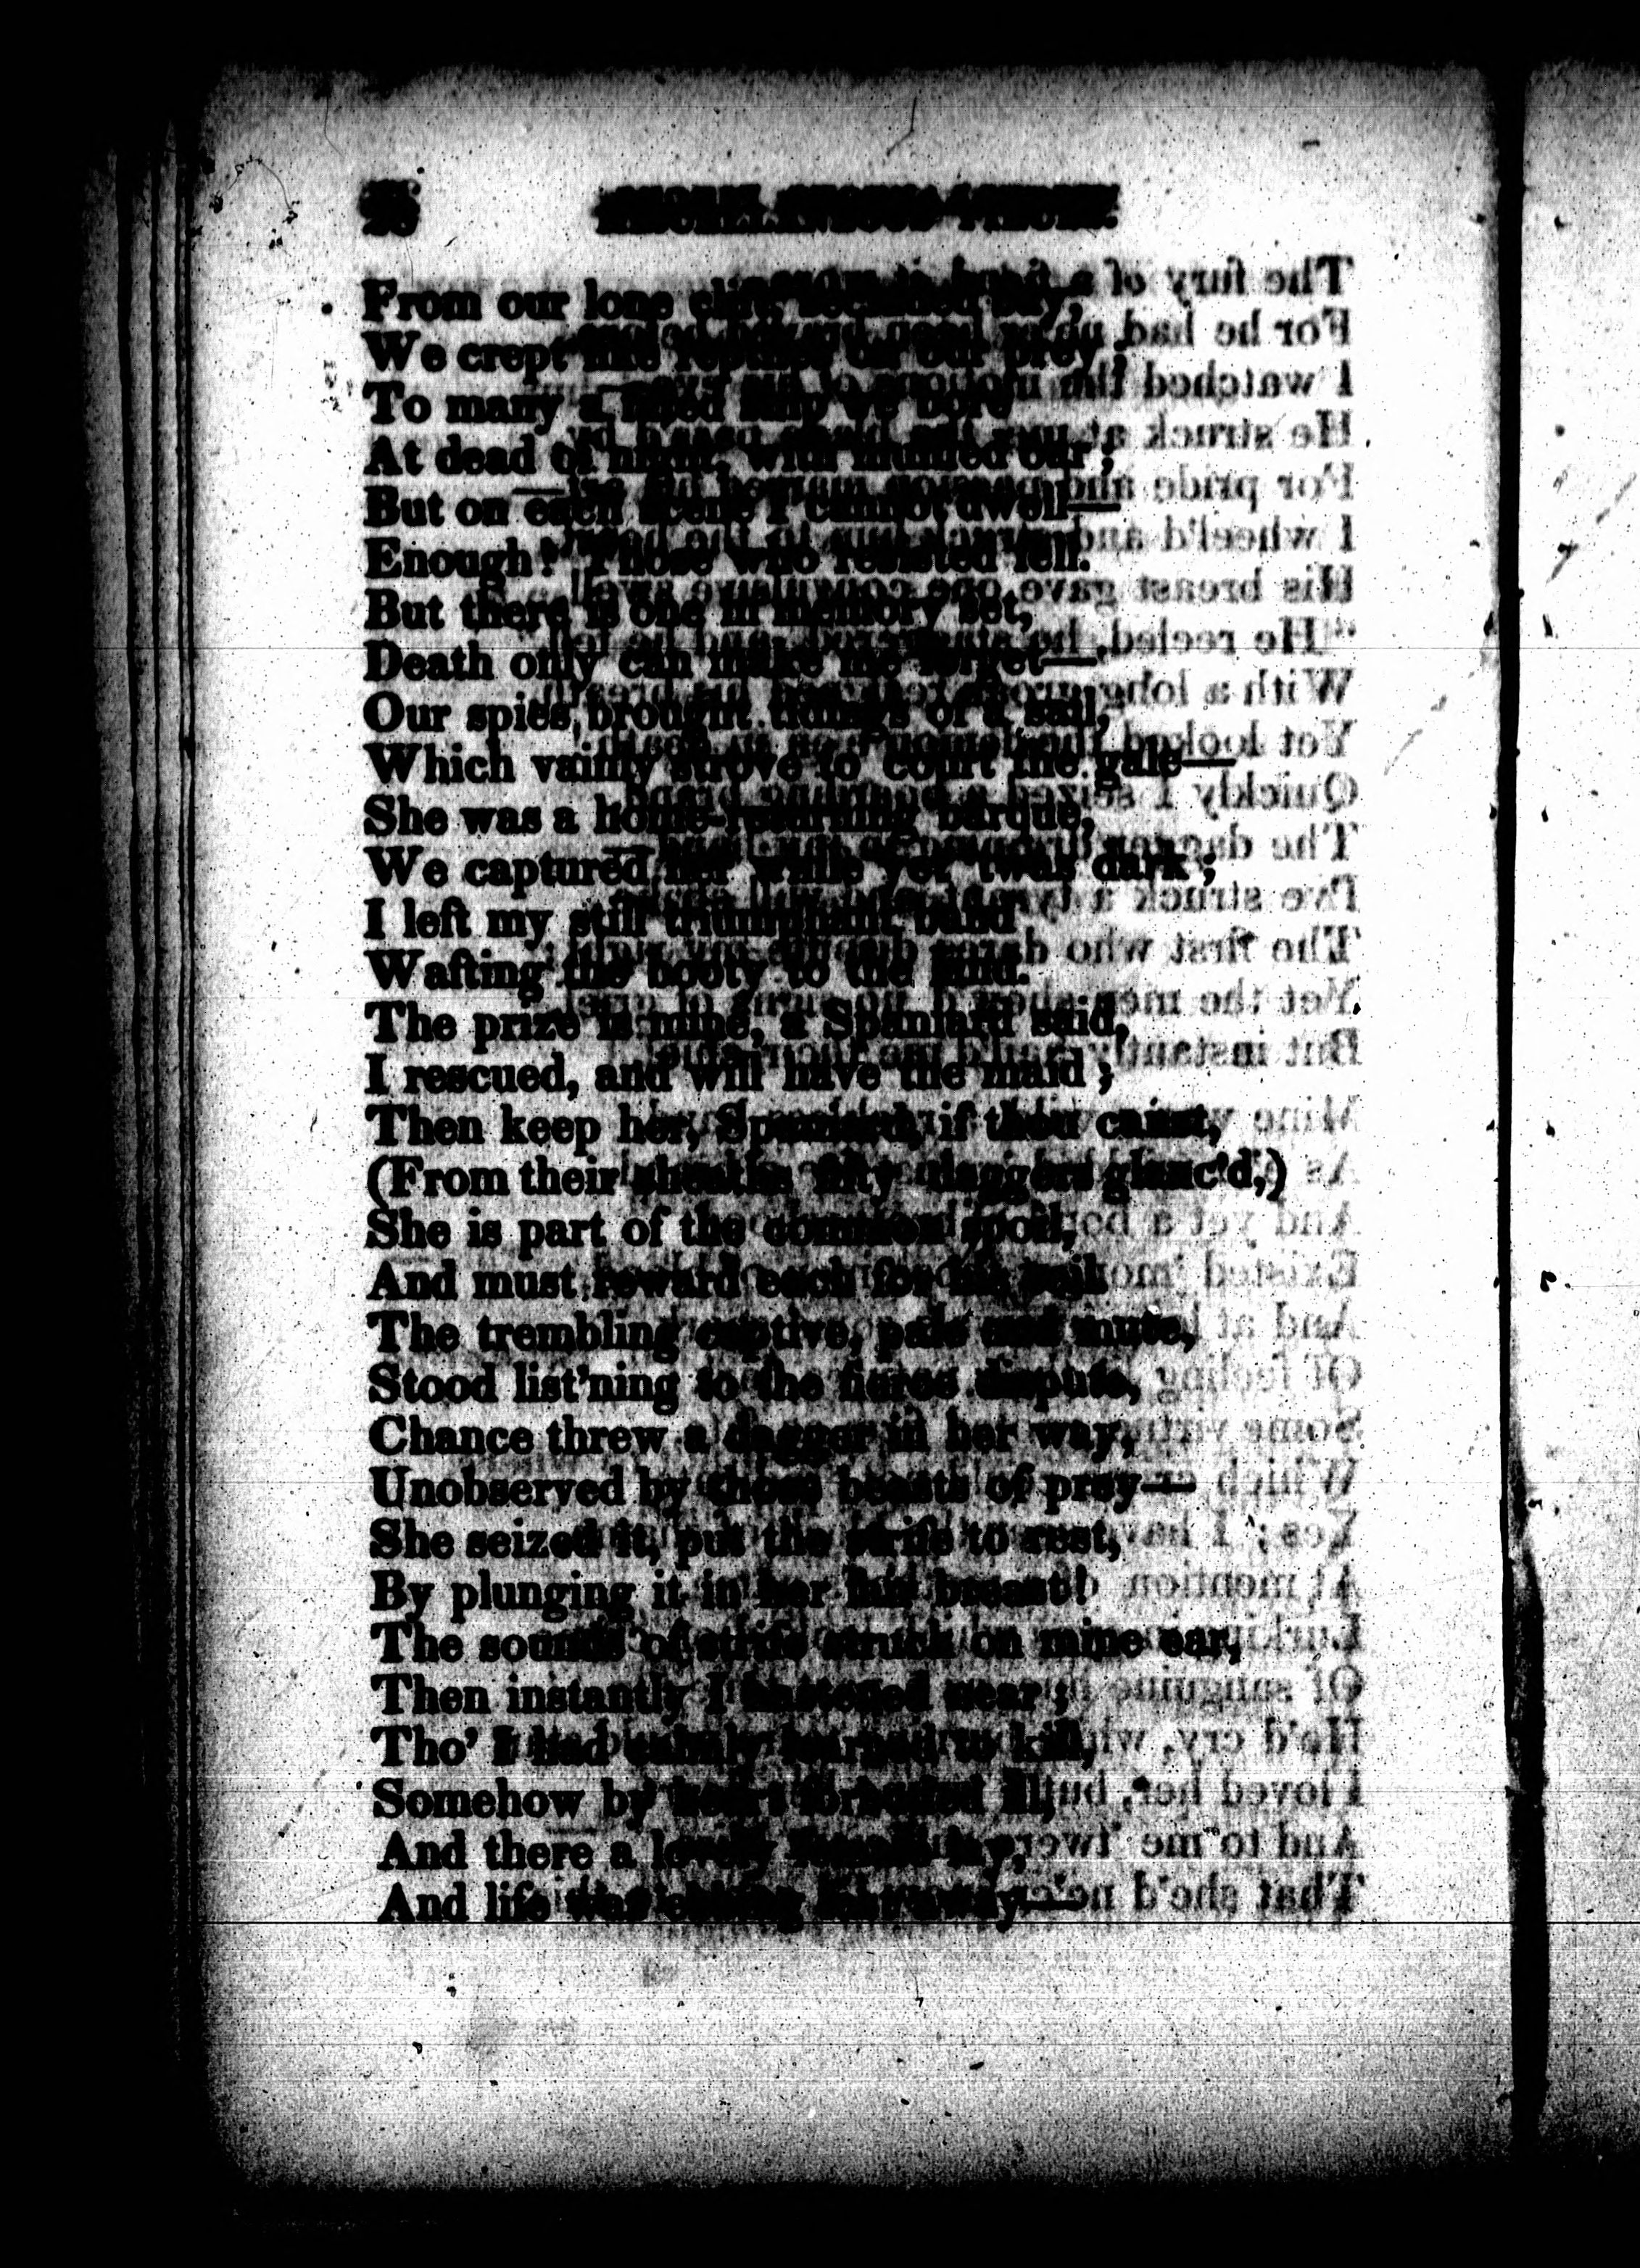 From our lone cliffs,
We crept like reptiles on our prey;
To many a we bore
At dead of night, with muffled oar;
But on each scene I cannot dwell—
Enough! Those who resisted fell.
But there is one in memory set,
Death only can make me forget—
Our spies brought tidings of a sail,
Which vainly strove to court the gale—
She was a home-returning barque,
We captured her while yet 'twas dark;
I left my still triumphant band
Wafting the booty to the land.
The prize is mine, a Spaniard said,
I rescued, and will have the maid;
Then keep her, Spaniard, if thou canst,
(From their sheaths fifty daggers glanc'd,)
She is part of the common spoil,
And must reward each for his toil.
The trembling captive, pale and mute,
Stood list'ning to the fierce dispute,
Chance threw a dagger in her way,
Unobserved by those beasts of prey—
She seized it, put the strife to rest,
By plunging it in her fair breast!
The sounds of strife struck on mine ear,
Then instantly I hastened near;
Tho' I had calmly learned to kill,
Somehow by heart foreboded ill,
And there a lovely lay,
And life was ebbing fast away—